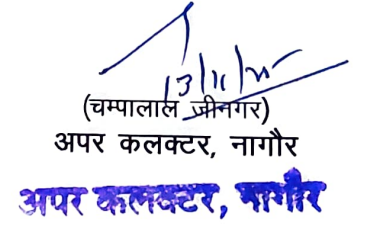 13/11/25
(चम्पालाल जीनगर)
अपर कलक्टर, नागौर
अपर कलक्टर, नागौर